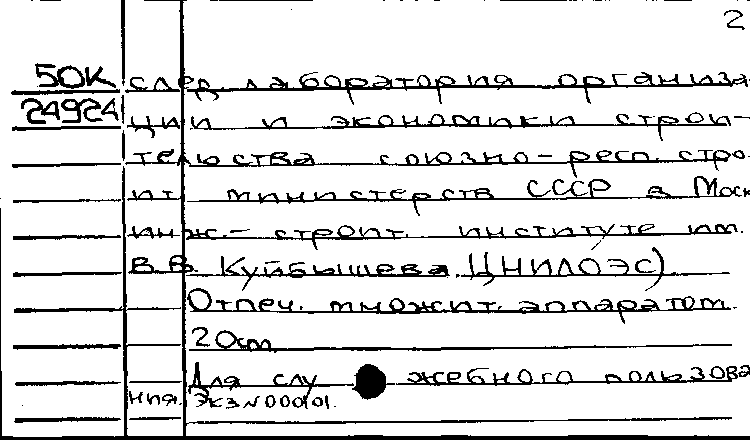 2
50К след. лаборатория организа
24924 ции и экономики строи-
тельства союзно-респ. стро
ит. министерств СССР в Моск
инж.- строит. институте им.
В.В. Куйбышева. ЦНИЛОЭС)
Отпеч. множит. аппаратом.
20см.
Для служебного пользова
ния. Экз N 000101.